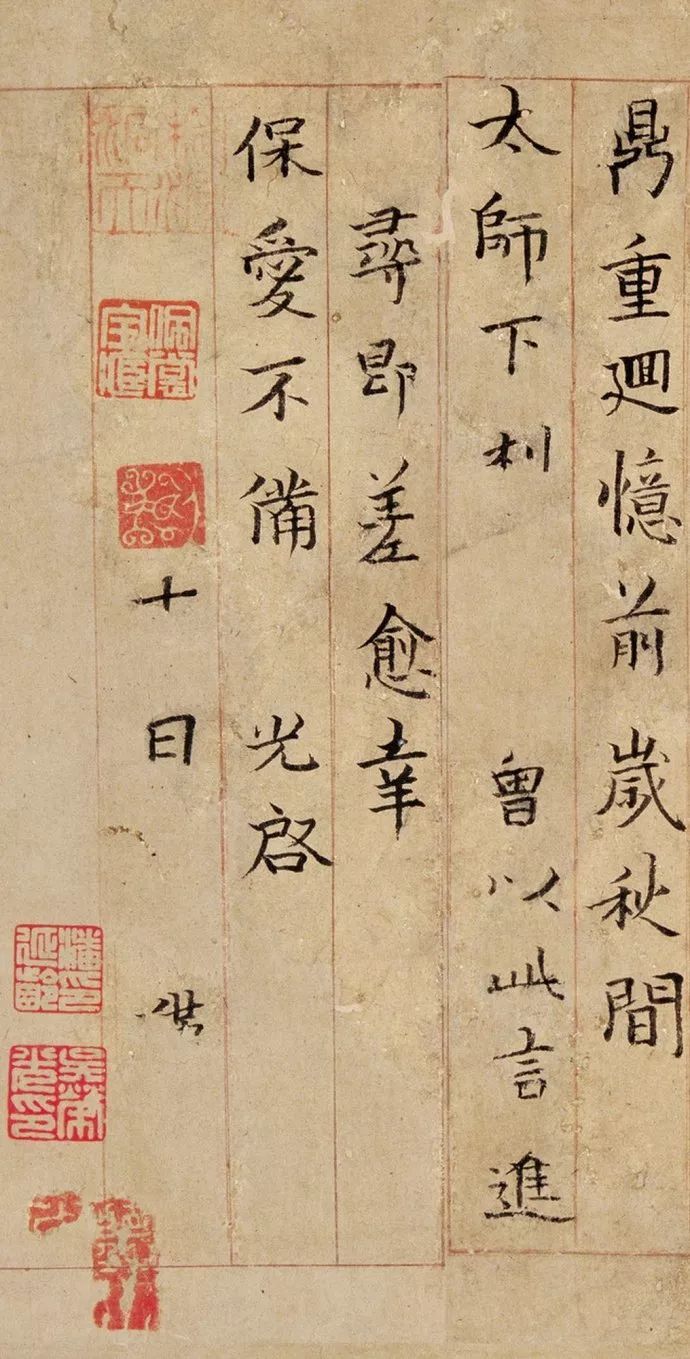 鼎重迴憶前歲秋間
太師下 曾以此言進
尋即差愈幸
保愛不備 光啓
十日